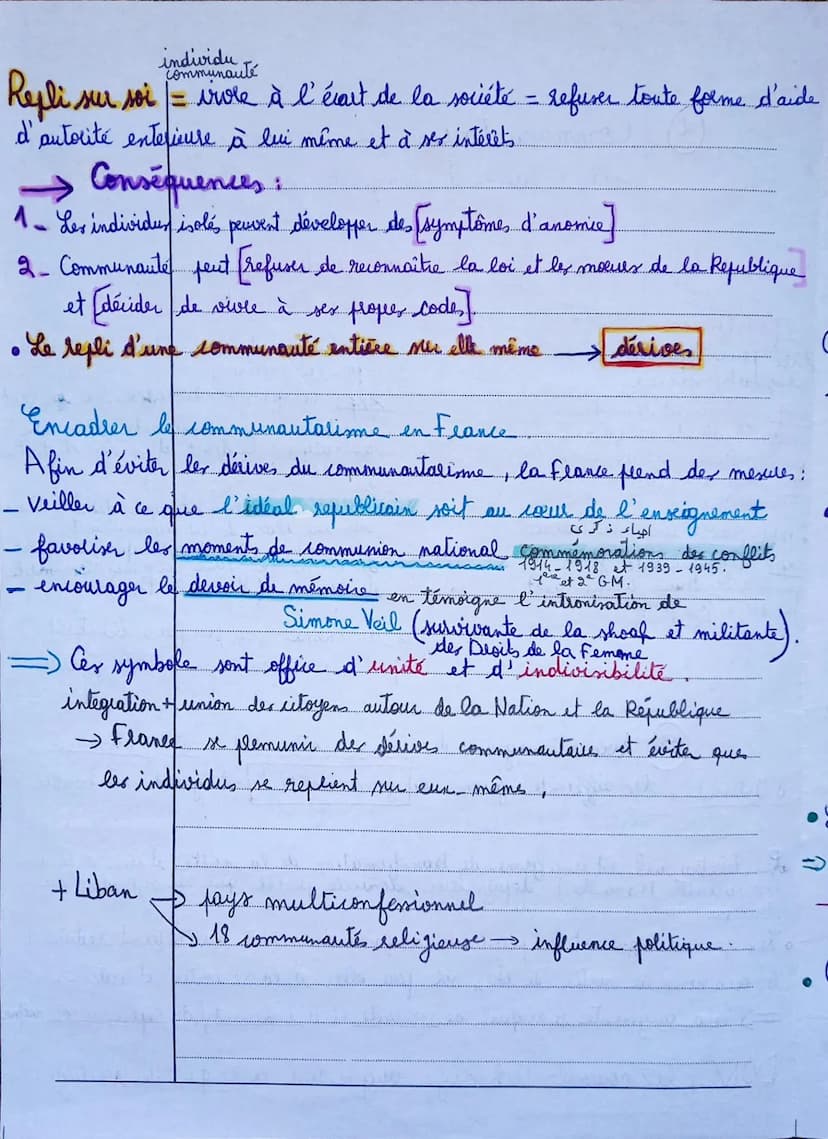 individu
communauté
Repli sur soi = vivre à l'écart de la société = refuser toute forme d'aide
d'autorité exterieure à lui même et à ses intérêts
→ Conséquences :
1- Les individus isolés peuvent développer des [symptômes d'anomie]
2- Communauté peut [refuser de reconnaître la loi et les mœurs de la République]
et [décider de vivre à ses propres codes].
• Le repli d'une communauté entière sur elle même → dérives
Encadrer le communautarisme en France
Afin d'éviter les dérives du communautarisme, la France prend des mesures :
- Veiller à ce que l'idéal republicain soit au cœur de l'enseignement
احياء ذكرى
- favoriser les moments de communion national commémorations des conflits
1914-1918 et 1939-1945.
1ère et 2e G.M.
- encourager le devoir de mémoire en témoigne l'intronisation de
Simone Veil (survivante de la shoah et militante).
des Droits de la Femme
⇒ Ces symbole sont office d'unité et d'indivisibilité.
integration + union des citoyens autour de la Nation et la République
→ France se premunir des dérives communautaires et éviter que
les individus se replient sur eux-même,
+ Liban → pays multiconfessionnel
→ 18 communautés religieuse → influence politique.